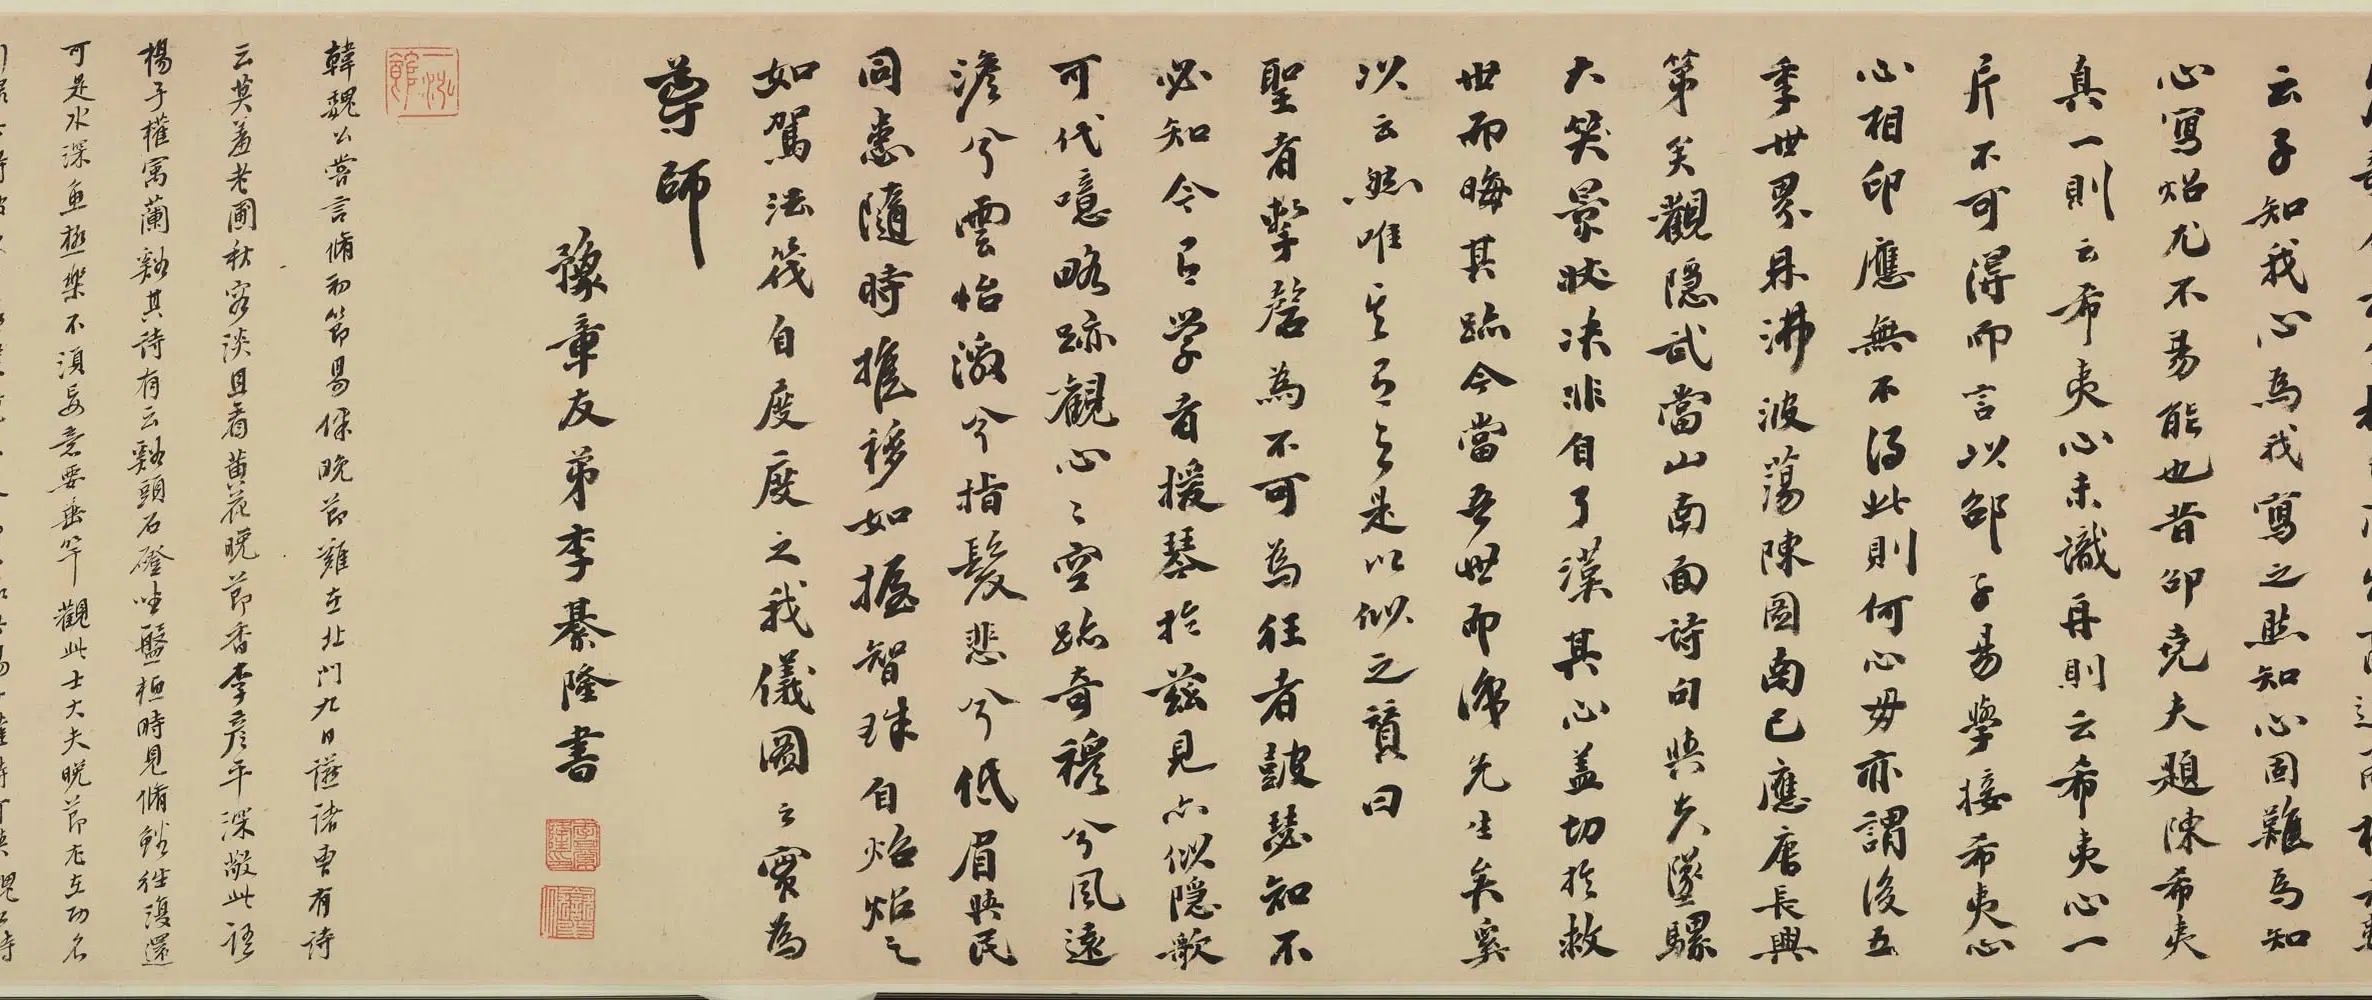 云子知我心爲我寫之照知心固難爲知
心寫炤尤不易能也昔邵堯夫題陳希夷
真一則云希夷心未識再則云希夷心一
片不可得而言以邵子易學接希夷心
心相印應無不得此則何心毋亦謂後五
季世界鼎沸波蕩陳圖南已應唐長興
第矣觀隱武當山南面詩句與夫墜騾
大笑景狀決非自了漢其心蓋切於救
世而晦其跡今當吾世而侔先生矣奚
以云然唯是以似之贊曰
聖者擊磬爲不可爲狂者鼓瑟知不
必知今有學者援琴於茲見亦似隱歌
可代噫略跡觀心心空跡奇穆兮風遠
澹兮雲怡激兮指髮悲兮低眉與民
同患隨時推移如握智珠自炤炤之
如駕法筏自度度之我儀圖之實爲
尊師
豫章友弟李綦隆書
韓魏公嘗言脩初節易保晚節難在北門九日讌諸曹有詩
云莫羞老圃秋容淡且看黄花晚節香李彦平深敬此語
楊子權寓蘭谿其詩有云谿頭石磴坐盤桓時見脩鱗往復還
可是水深魚極樂不須妄意要垂竿觀此士大夫晚節尤在功名